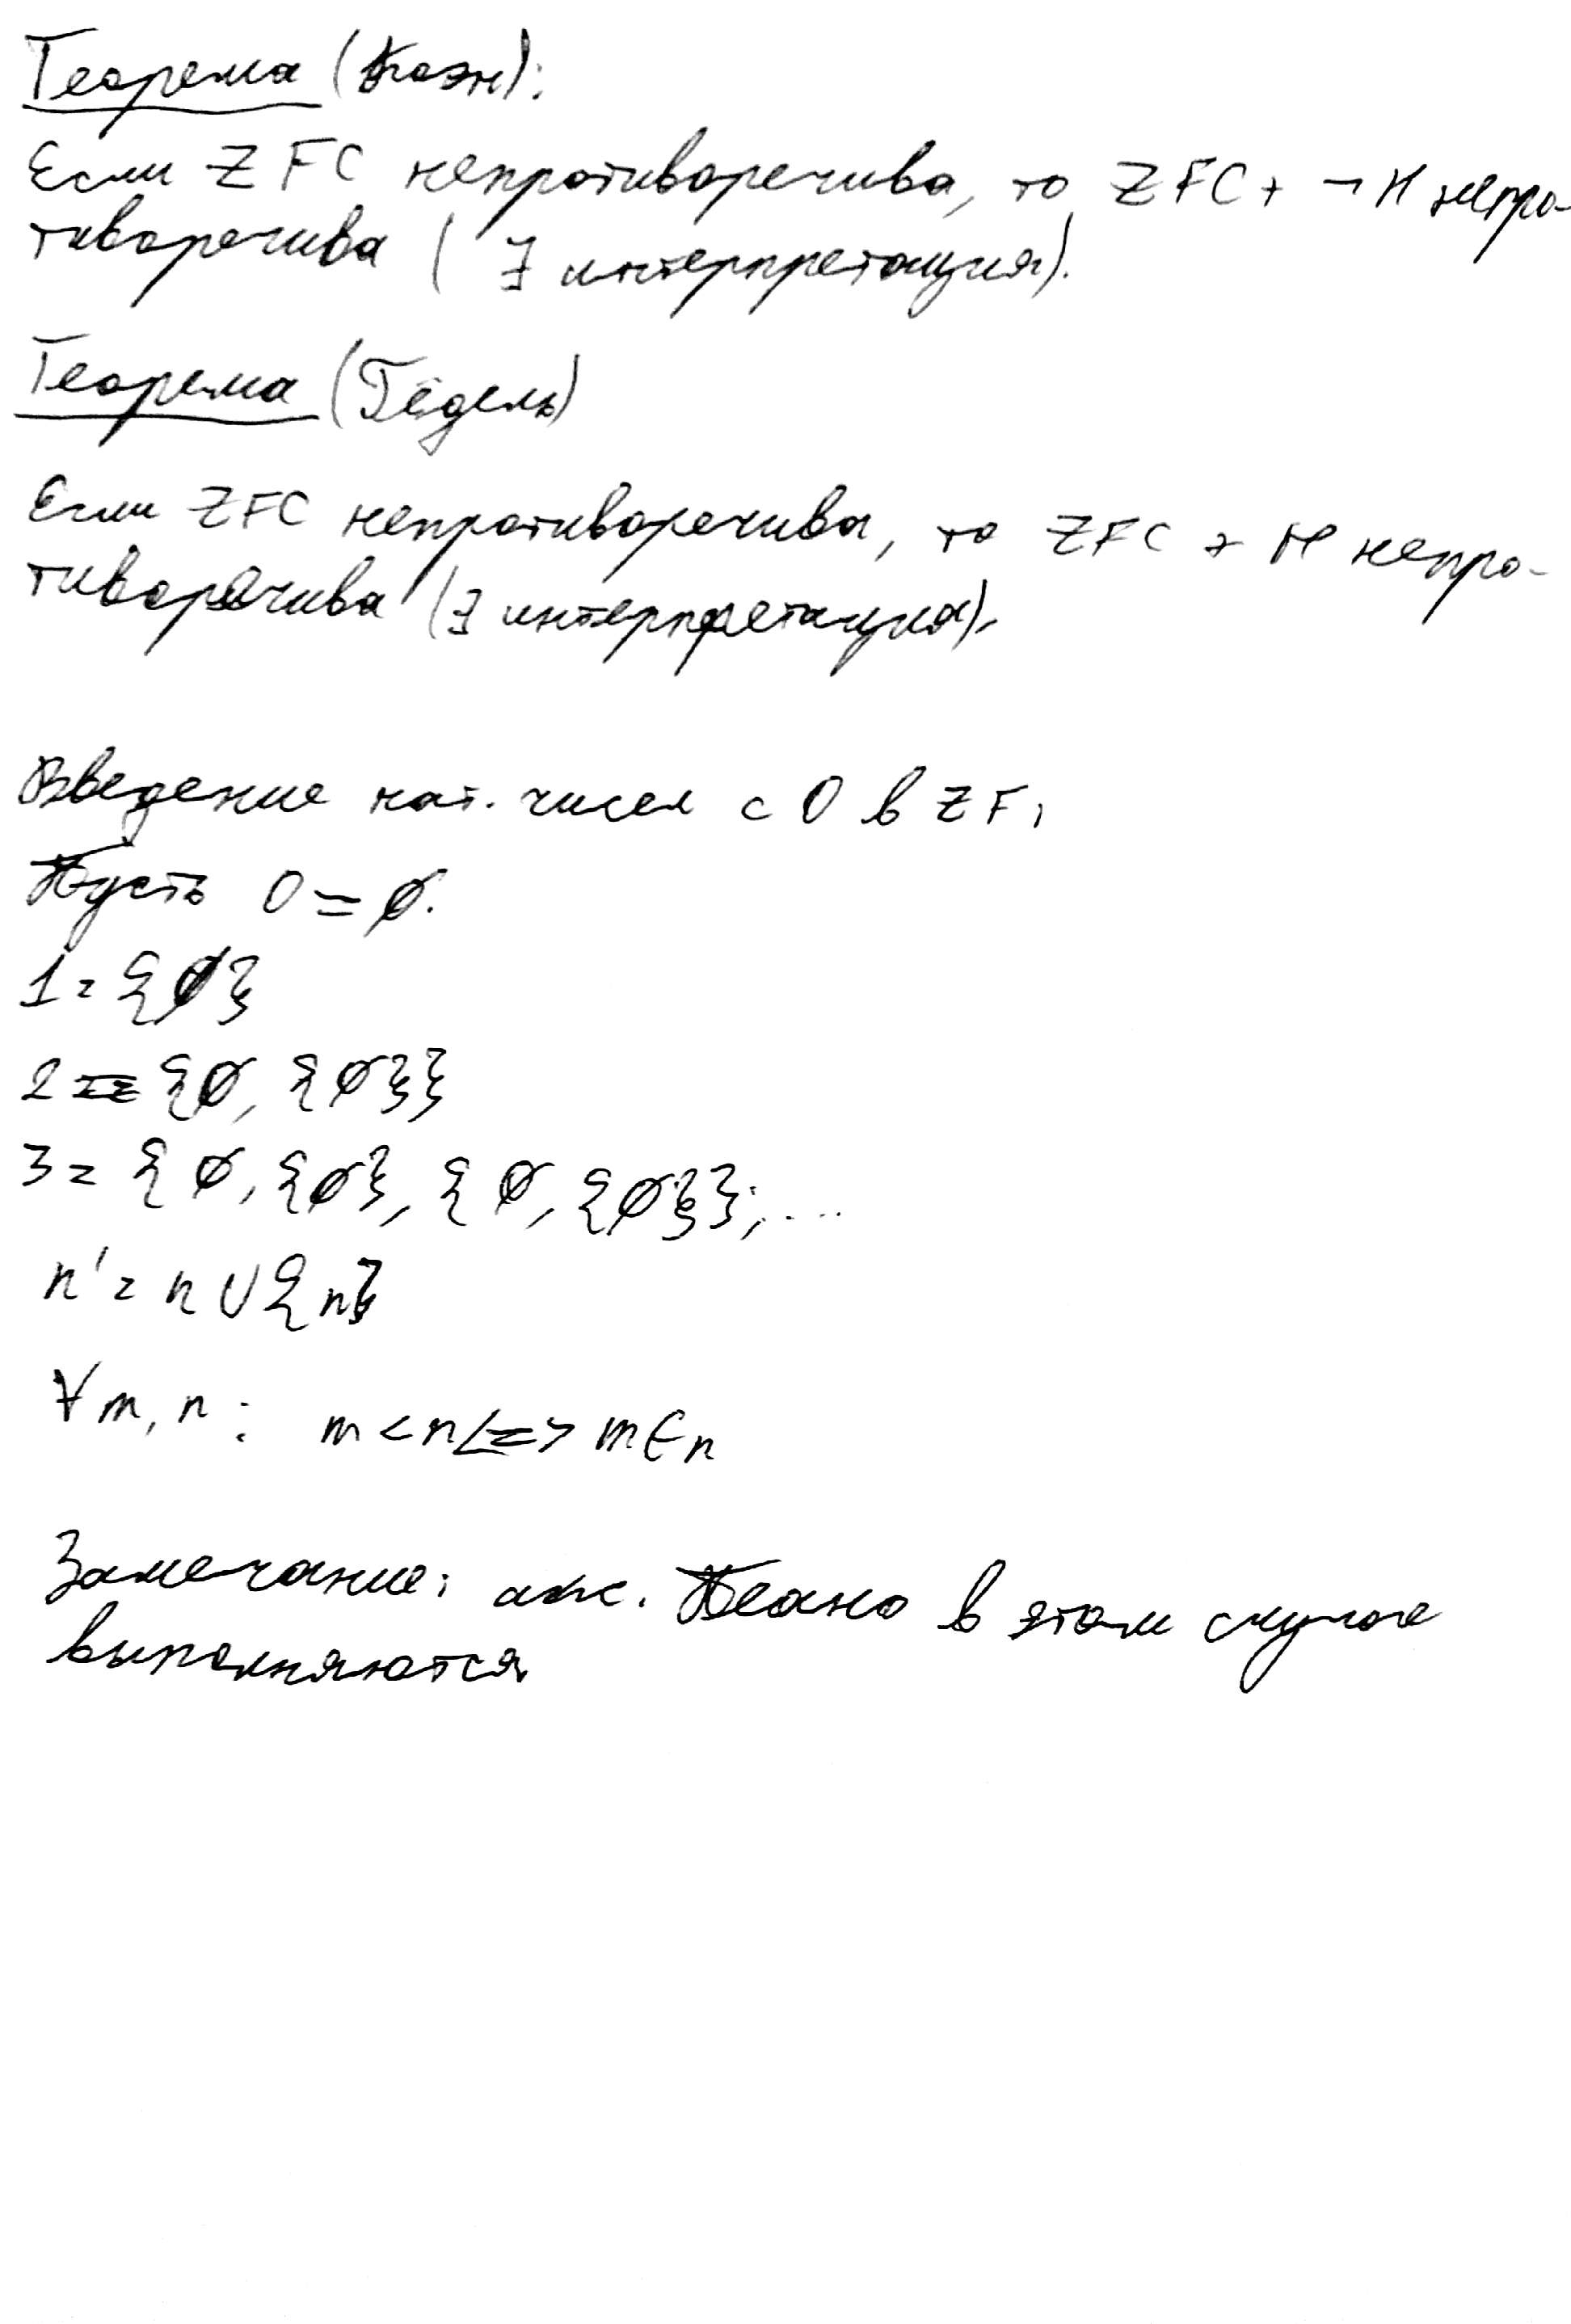 Теорема (Коэн):
Если ZFC непротиворечива, то ZFC + ¬H непро-
тиворечива (∃ интерпретация).
Теорема (Гёдель)
Если ZFC непротиворечива, то ZFC + H непро-
тиворечива (∃ интерпретация).
Введение нат. чисел с 0 в ZF:
Пусть 0 = ∅.
1 = {∅}
2 = {∅, {∅}}
3 = {∅, {∅}, {∅, {∅}}; ...
n' = n ∪ {n}
∀ m, n : m < n <=> m ∈ n
Замечание: акс. Пеано в этом случае
выполняются